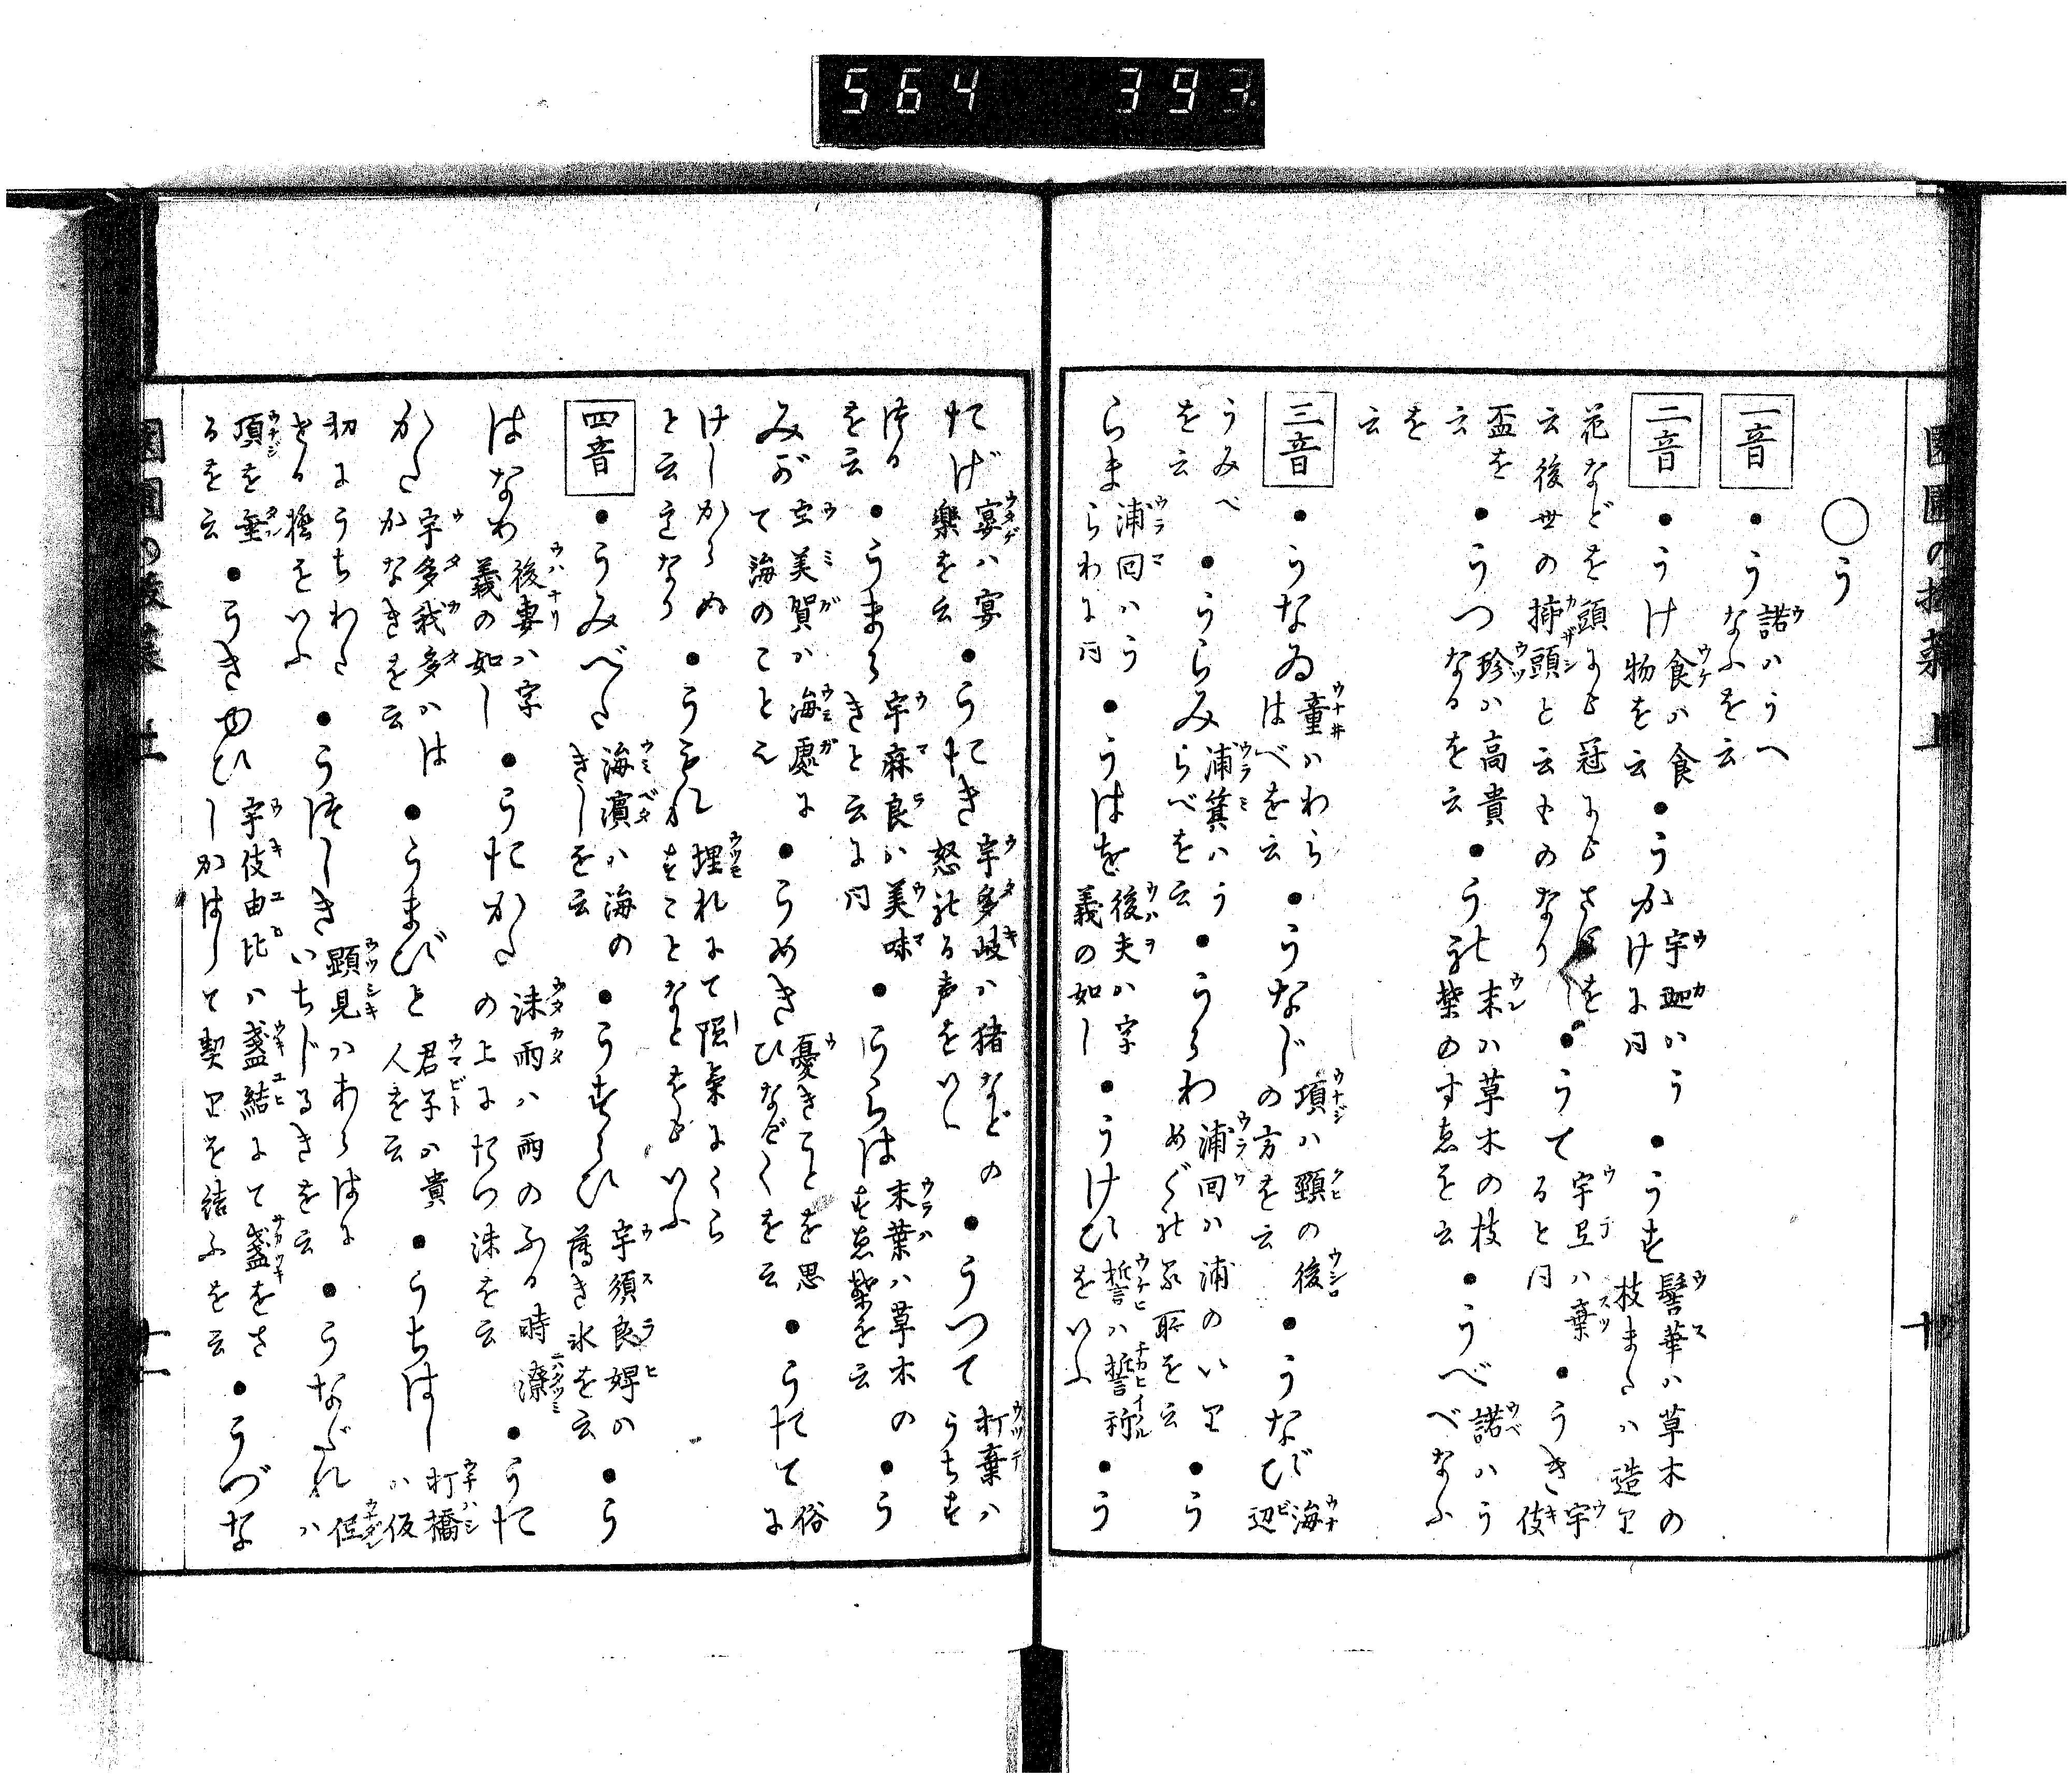 564 393
○う
一音 ●う 諾ハうへなふを云
二音 ●うけ 食ハ食物を云 ●うか 宇迦ハうけに同 ●うず 髻華ハ草木の枝または造り
花などを頭にも冠にもさすを云後世の挿頭と云ものなり ●うて 宇弖ハ棄るに同 ●うき 宇伎
盃を云 ●うつ 珍ハ高貴なるを云 ●うれ 末ハ草木の枝葉のすゑを云 ●うべ 諾ハうべなふ
を云
三音 ●うなゐ 童ハわらはべを云 ●うなじ 項ハ頸の後の方を云 ●うなび 海辺
うみべを云 ●うらみ 浦箕ハうらべを云 ●うらわ 浦回ハ浦のいりめぐれる所を云 ●う
らま 浦回ハうらわに同 ●うはを 後夫ハ字義の如し ●うけひ 誓ハ誓祈をいふ ●う
たげ 宴ハ宴楽を云 ●うたき 宇多岐ハ猪などの怒れる声をいふ ●うつて 打棄ハうちす
つるを云 ●うまら 宇麻良ハ美味きと云に同 ●うらは 末葉ハ草木のすゑ葉を云 ●う
みが 宇美賀ハ海處にて海のことを ●うめき 憂きことを思ひなげくを云 ●うたて 俗に
けしからぬと云意なり ●うもれ 埋れにて陰気にくらきことなどをもいふ
四音 ●うみべた 海濱ハ海のきしを云 ●うすらひ 宇須良婢ハ薄き氷を云 ●う
はなり 後妻ハ字義の如し ●うたかた 沫雨ハ雨のふる時潦の上にたつ沫を云 ●うた
かた 宇多我多ハはかなきを云 ●うまびと 君子ハ貴人を云 ●うちはし 打橋ハ仮
初にうちわたせる橋をいふ ●うつしき 顕見ハあらはにいちじるきを云 ●うなだれ 低ハ
項を垂るを云 ●うきゆひ 宇伎由比ハ盞結にて盞をさしかはして契りを結ふを云 ●うづな